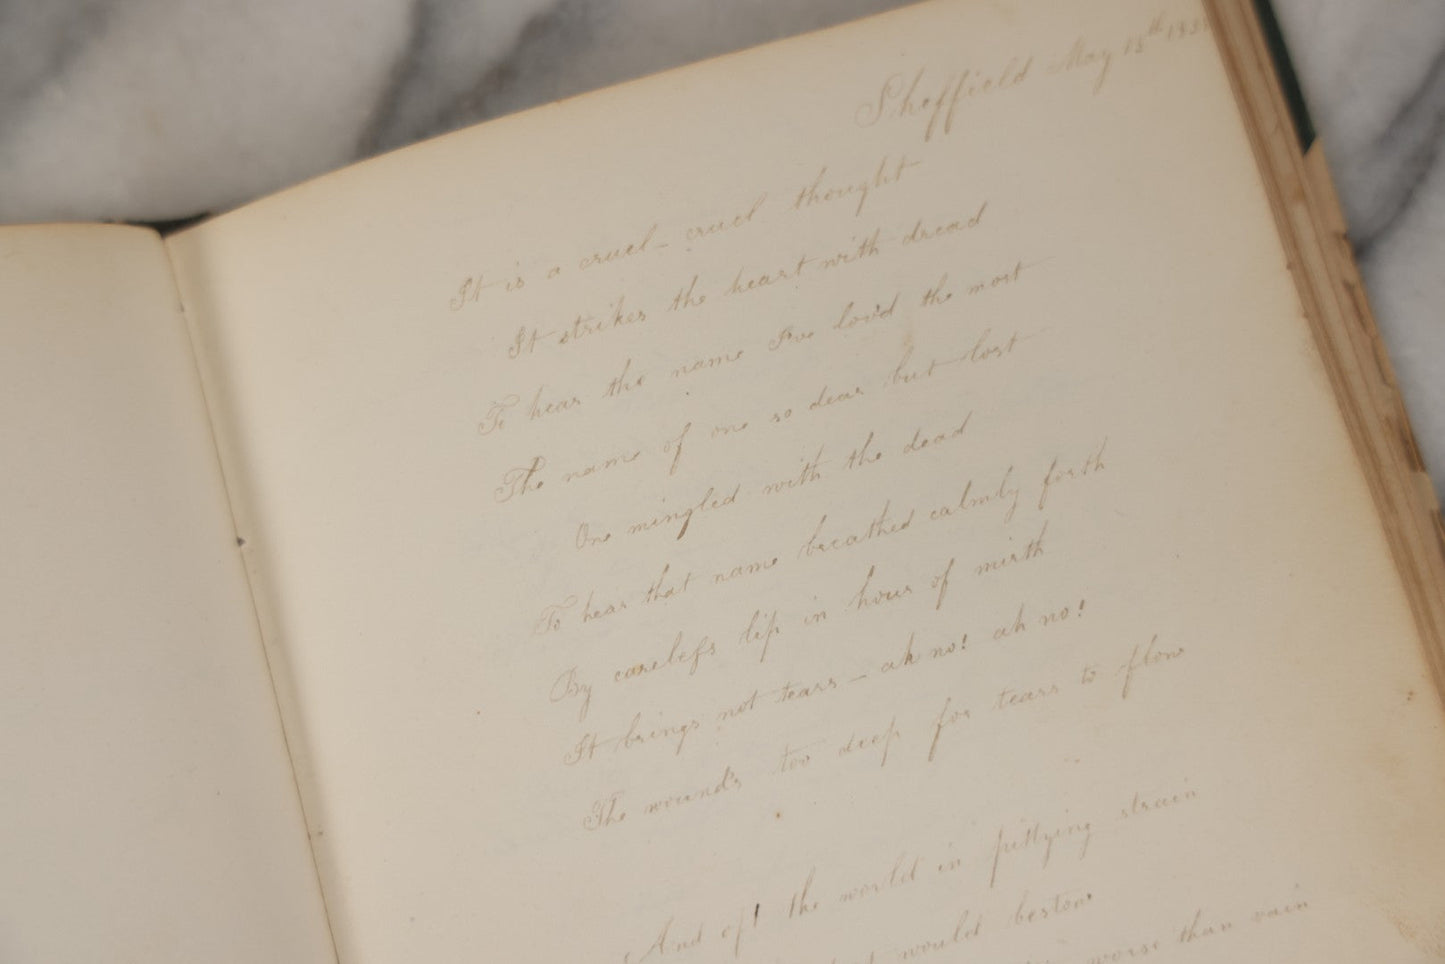 Sheffield May 15th 183
It is a cruel – cruel thought
It strikes the heart with dread
To hear the name I've lov'd the most
The name of one so dear but lost
One mingled with the dead
To hear that name breathed calmly forth
By careless lip in hour of mirth
It brings not tears – ah no! ah no!
The wound's too deep for tears to flow
And oft the world in pittying strain
would bestow
worse than vain